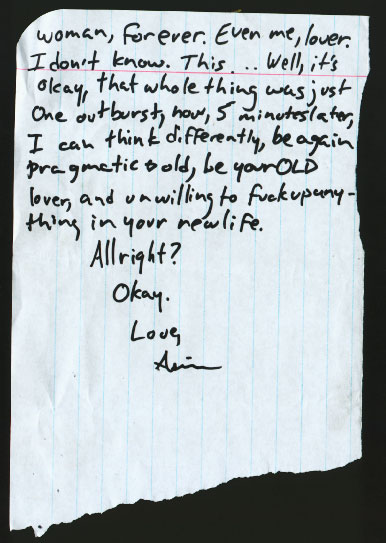 woman, forever. Even me, lover.
I don't know. This ... Well, it's
okay, that whole thing was just
one outburst, now, 5 minutes later,
I can think differently, be again
pragmatic & old, be your OLD
lover, and unwilling to fuck up any-
thing in your new life.
Allright?
Okay.
Love,